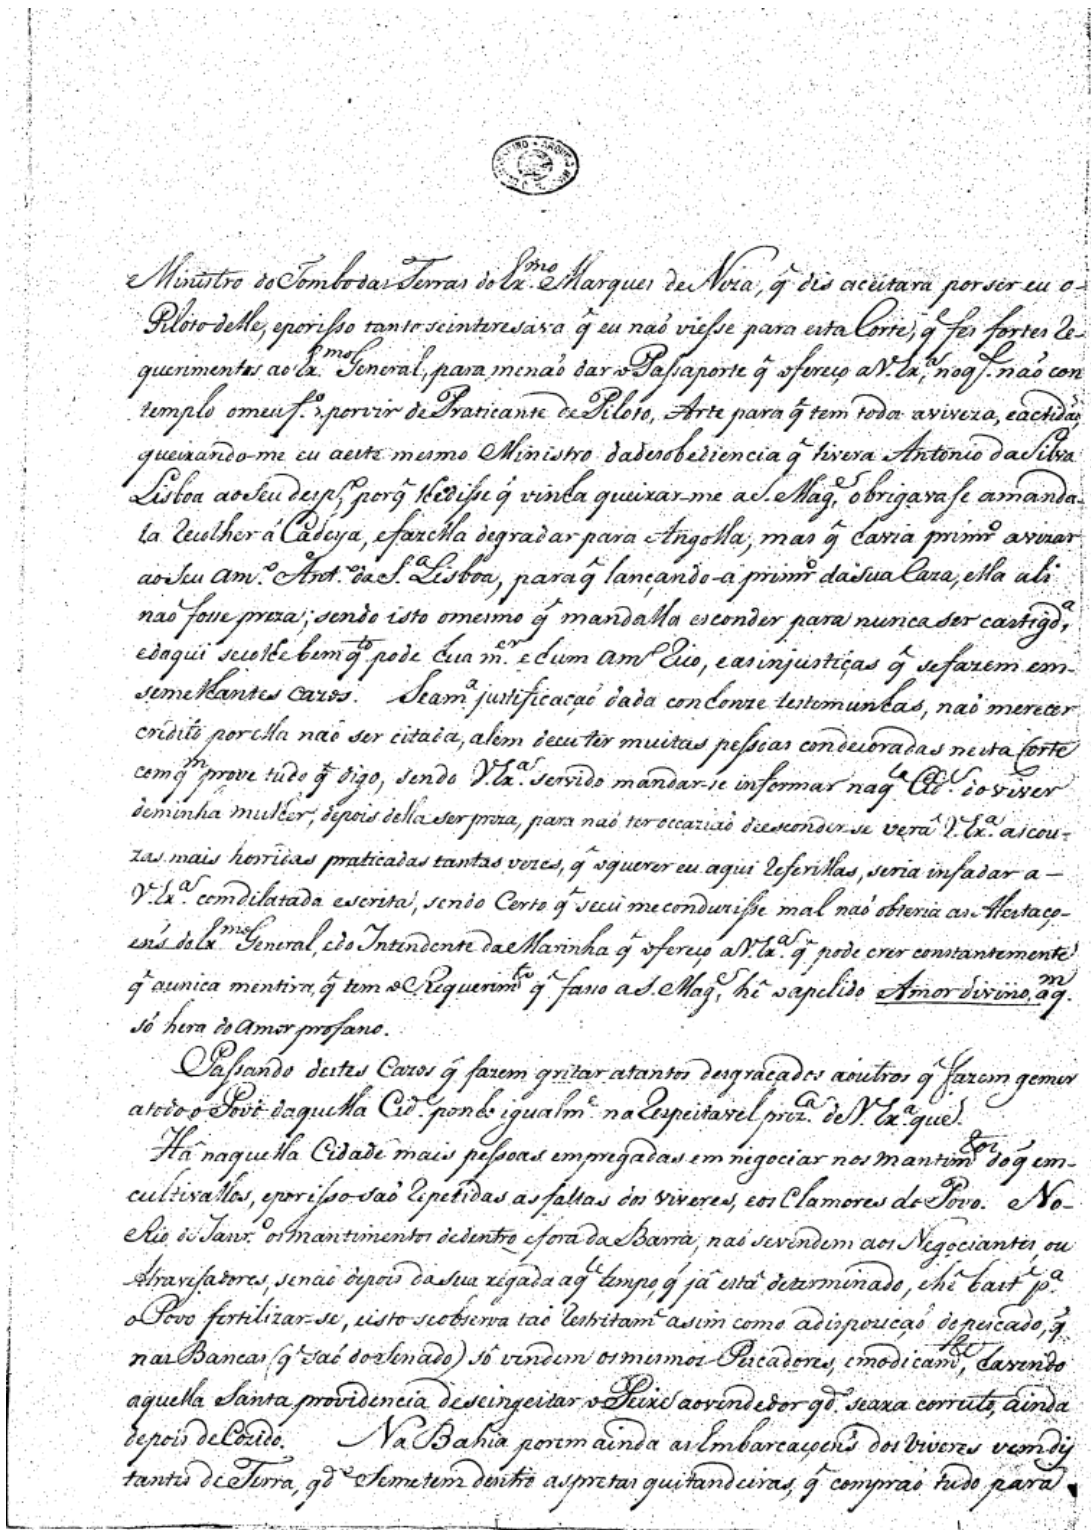 Ministro do Tombo das Terras do Ex.mo Marques de Niza, q̃ dis aceitara por ser eu o-
Piloto delle, eporisso tanto seinteresava q̃ eu naõ viesse para esta Corte, q̃ fes fortes Re-
querimentos ao Ex.mo General, para menaõ dar o Passaporte q̃ ofereço a V. Ex.a, noql. naõ con
templo omeu f.o por vir de Praticante de Piloto, Arte para q̃ tem toda aviveza, eactidaõ,
queixando-me eu aeste mesmo Ministro dadesobediencia q̃ tivera Antonio da Silva
Lisboa ao Seu desp.o, porq̃ lhedisse q̃ vinha queixar-me a S. Mag.e, obrigavase amanda-
la Recolher á Cadeya, efazella degradar para Angolla, mas q̃ havia primr.o avizar
ao Seu am.o Ant.o da S.a Lisboa, para q̃ lançando-a primr.o dasua Caza, ella ali
naõ fosse preza; sendo isto omesmo q̃ mandalla esconder para nunca ser castigd.a,
edaqui secolhe bem q.to pode hua m.er ehum Am.o Rico, easinjustiças q̃ sefazem em-
semelhantes cazos. Seam.a justificaçaõ dada conhonze testemunhas, naõ merecer
crédito por ella naõ ser citada, alem deeu ter muitas pessoas condecoradas nesta Corte
comq.m prove tudo q̃ digo, sendo V. Ex.a servido mandar-se informar naq.la Cid.e do viver
deminha mulher, depois della ser preza, para naõ ter occaziaõ deesconder-se verá V. Ex.a ascou-
zas mais horridas praticadas tantas vezes, q̃ oquerer eu aqui Referillas, seria infadar a-
V. Ex.a comdilatada escrita, sendo Certo q̃ seeu meconduzisse mal naõ obteria as Atestaço-
ens do Ex.mo General, edo Intendente da Marinha q̃ ofereço a V. Ex.a q̃ pode crer constantemente
q̃ aunica mentira, q̃ tem o Requerim.to q̃ fasso a S. Mag.e, hé oapelido Amor divino, aq.m
só hera do Amor profano.
Passando destes Cazos q̃ fazem gritar atantos desgraçados aoutros q̃ fazem gemer
atodo o Povo daquella Cid.e ponho igualm.e na Respeitavel prez.ca de V. Ex.a que.
Há naquella Cidade mais pessoas empregadas em negociar nos mantim.tos doq̃ em-
cultivallos, eporisso saõ Repetidas as faltas dos viveres, eos Clamores do Povo. No-
Rio de Janr.o os mantimentos dedentro efora da Barra, naõ sevendem aos Negociantes ou
Atravesadores, senaõ depois da sua xegada aq.le tempo, q̃ já está determinado, ehé bast.e p.a
o Povo fertilizar-se, eisto seobserva taõ Restritam.e asim como adispoziçaõ do pescado, q̃
nas Bancas (q̃ saõ do Senado) só vendem osmesmos Pescadores, emodicam.te, havendo
aquella Santa providencia deseingeitar o Peixe aovendedor qd.o seaxa corruto, ainda
depois de Cozido. Na Bahia porem ainda as Embarcaçoens dos viveres vem dis
tantes de Terra, qd.o Semetem dentro aspretas quitandeiras, q̃ compraõ tudo para